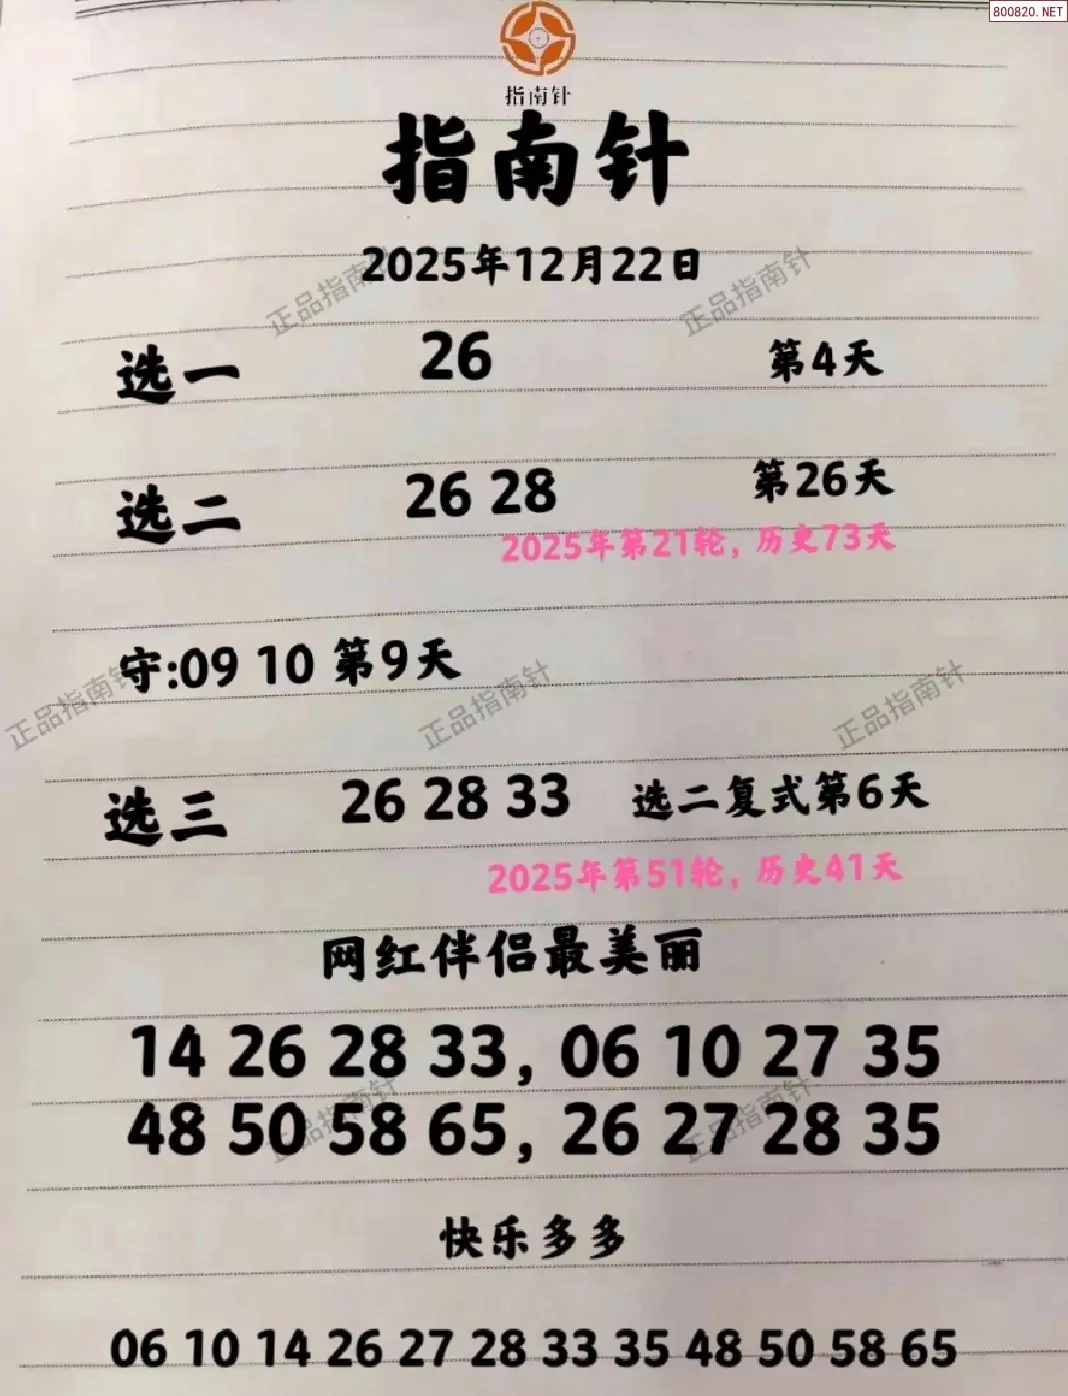 800820.NET
指南针
指南针
2025年12月22日
正品指南针 正品指南针
选一 26 第4天
选二 26 28 第26天
2025年第21轮，历史73天
守:09 10 第9天
正品指南针 正品指南针 正品指南针
选三 26 28 33 选二复式第6天
2025年第51轮，历史41天
网红伴侣最美丽
14 26 28 33, 06 10 27 35
正品指南针 正品指南针
48 50 58 65, 26 27 28 35
快乐多多
06 10 14 26 27 28 33 35 48 50 58 65